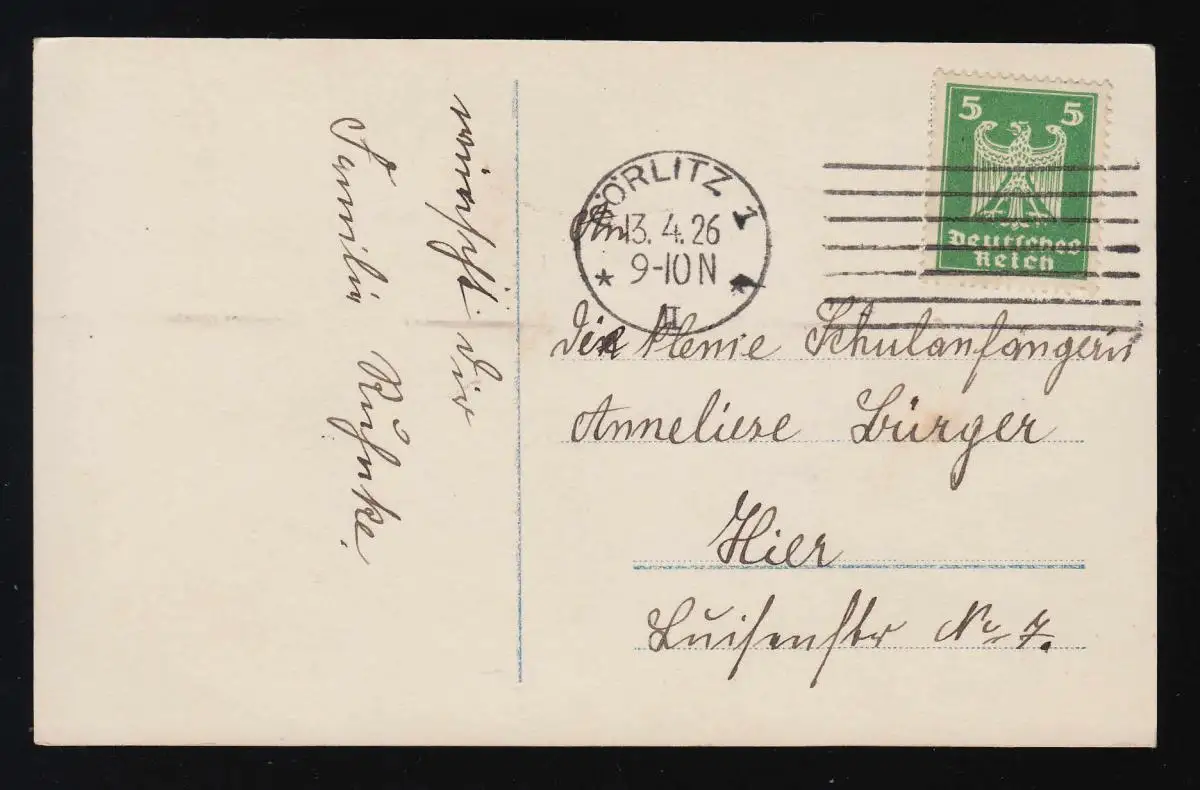 wünscht dir
Familie Kuhnke.
GÖRLITZ 1
13. 4. 26
9-10 N
II
5 5
Deutsches
Reich
An
die kleine Schulanfängerin
Anneliese Bürger
Hier
Luisenstr No 7.